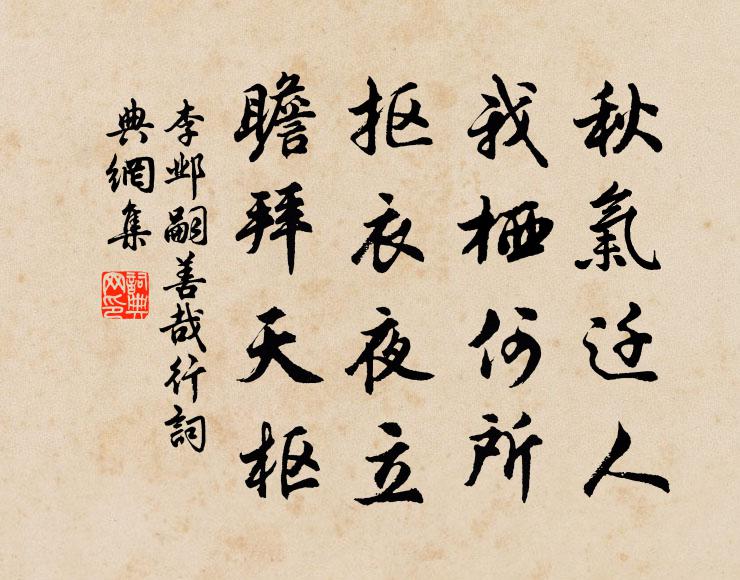 秋氣迁人
我栖何所
抠衣夜立
瞻拜天枢
李邺嗣善哉行詞
典網集
詞典
网印